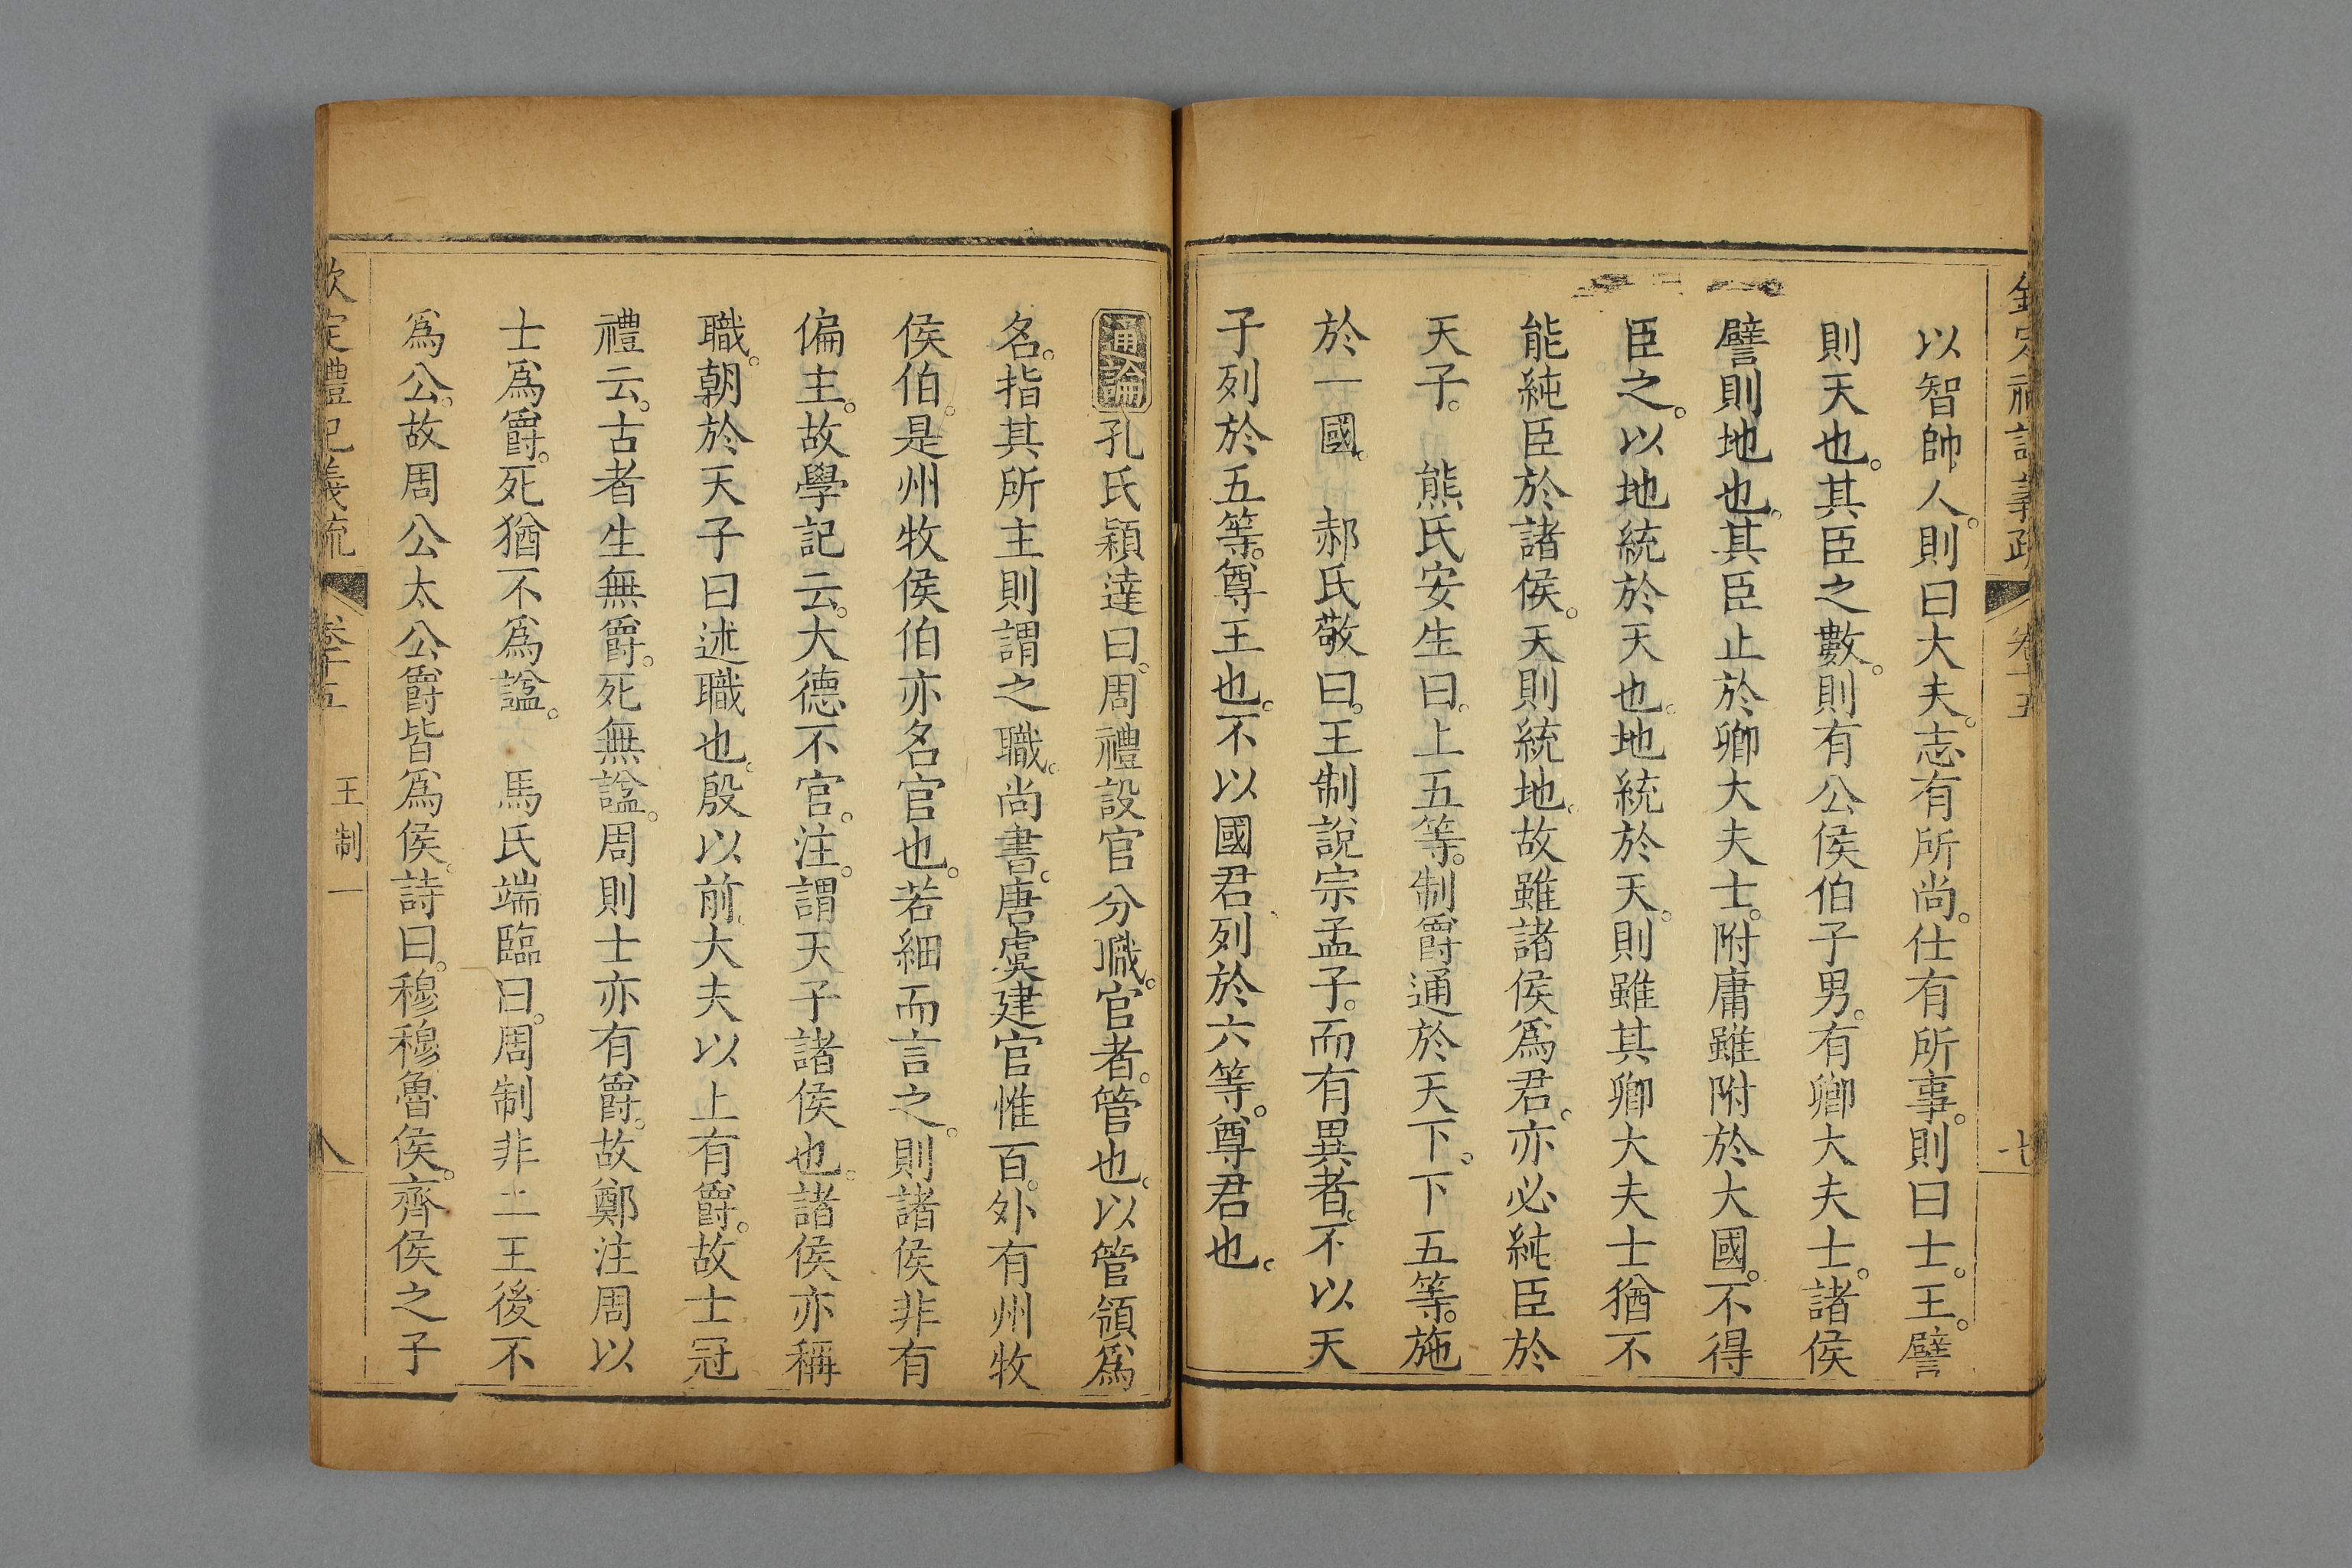 欽定禮記義疏 卷十五 七
以智帥人。則曰大夫。志有所尚。仕有所事。則曰士。王。譬
則天也。其臣之數。則有公侯伯子男。有卿大夫士。諸侯
譬則地也。其臣止於卿大夫士。附庸雖附於大國。不得
臣之。以地統於天也。地統於天。則雖其卿大夫士猶不
能純臣於諸侯。天則統地。故雖諸侯爲君。亦必純臣於
天子。 熊氏安生曰。上五等。制爵通於天下。下五等。施
於一國。 郝氏敬曰。王制說宗孟子。而有異者。不以天
子列於五等。尊王也。不以國君列於六等。尊君也。
通論 孔氏穎達曰。周禮設官分職。官者。管也。以管領爲
名。指其所主則謂之職。尚書。唐虞建官惟百。外有州牧
侯伯。是州牧侯伯亦名官也。若細而言之。則諸侯非有
偏主。故學記云。大德不官。注。謂天子諸侯也。諸侯亦稱
職。朝於天子曰述職也。殷以前。大夫以上有爵。故士冠
禮云。古者生無爵。死無諡。周則士亦有爵。故鄭注周以
士爲爵。死猶不爲諡。 馬氏端臨曰。周制非二王後不
爲公。故周公太公爵皆爲侯。詩曰。穆穆魯侯。齊侯之子
欽定禮記義疏 卷十五 王制一 八